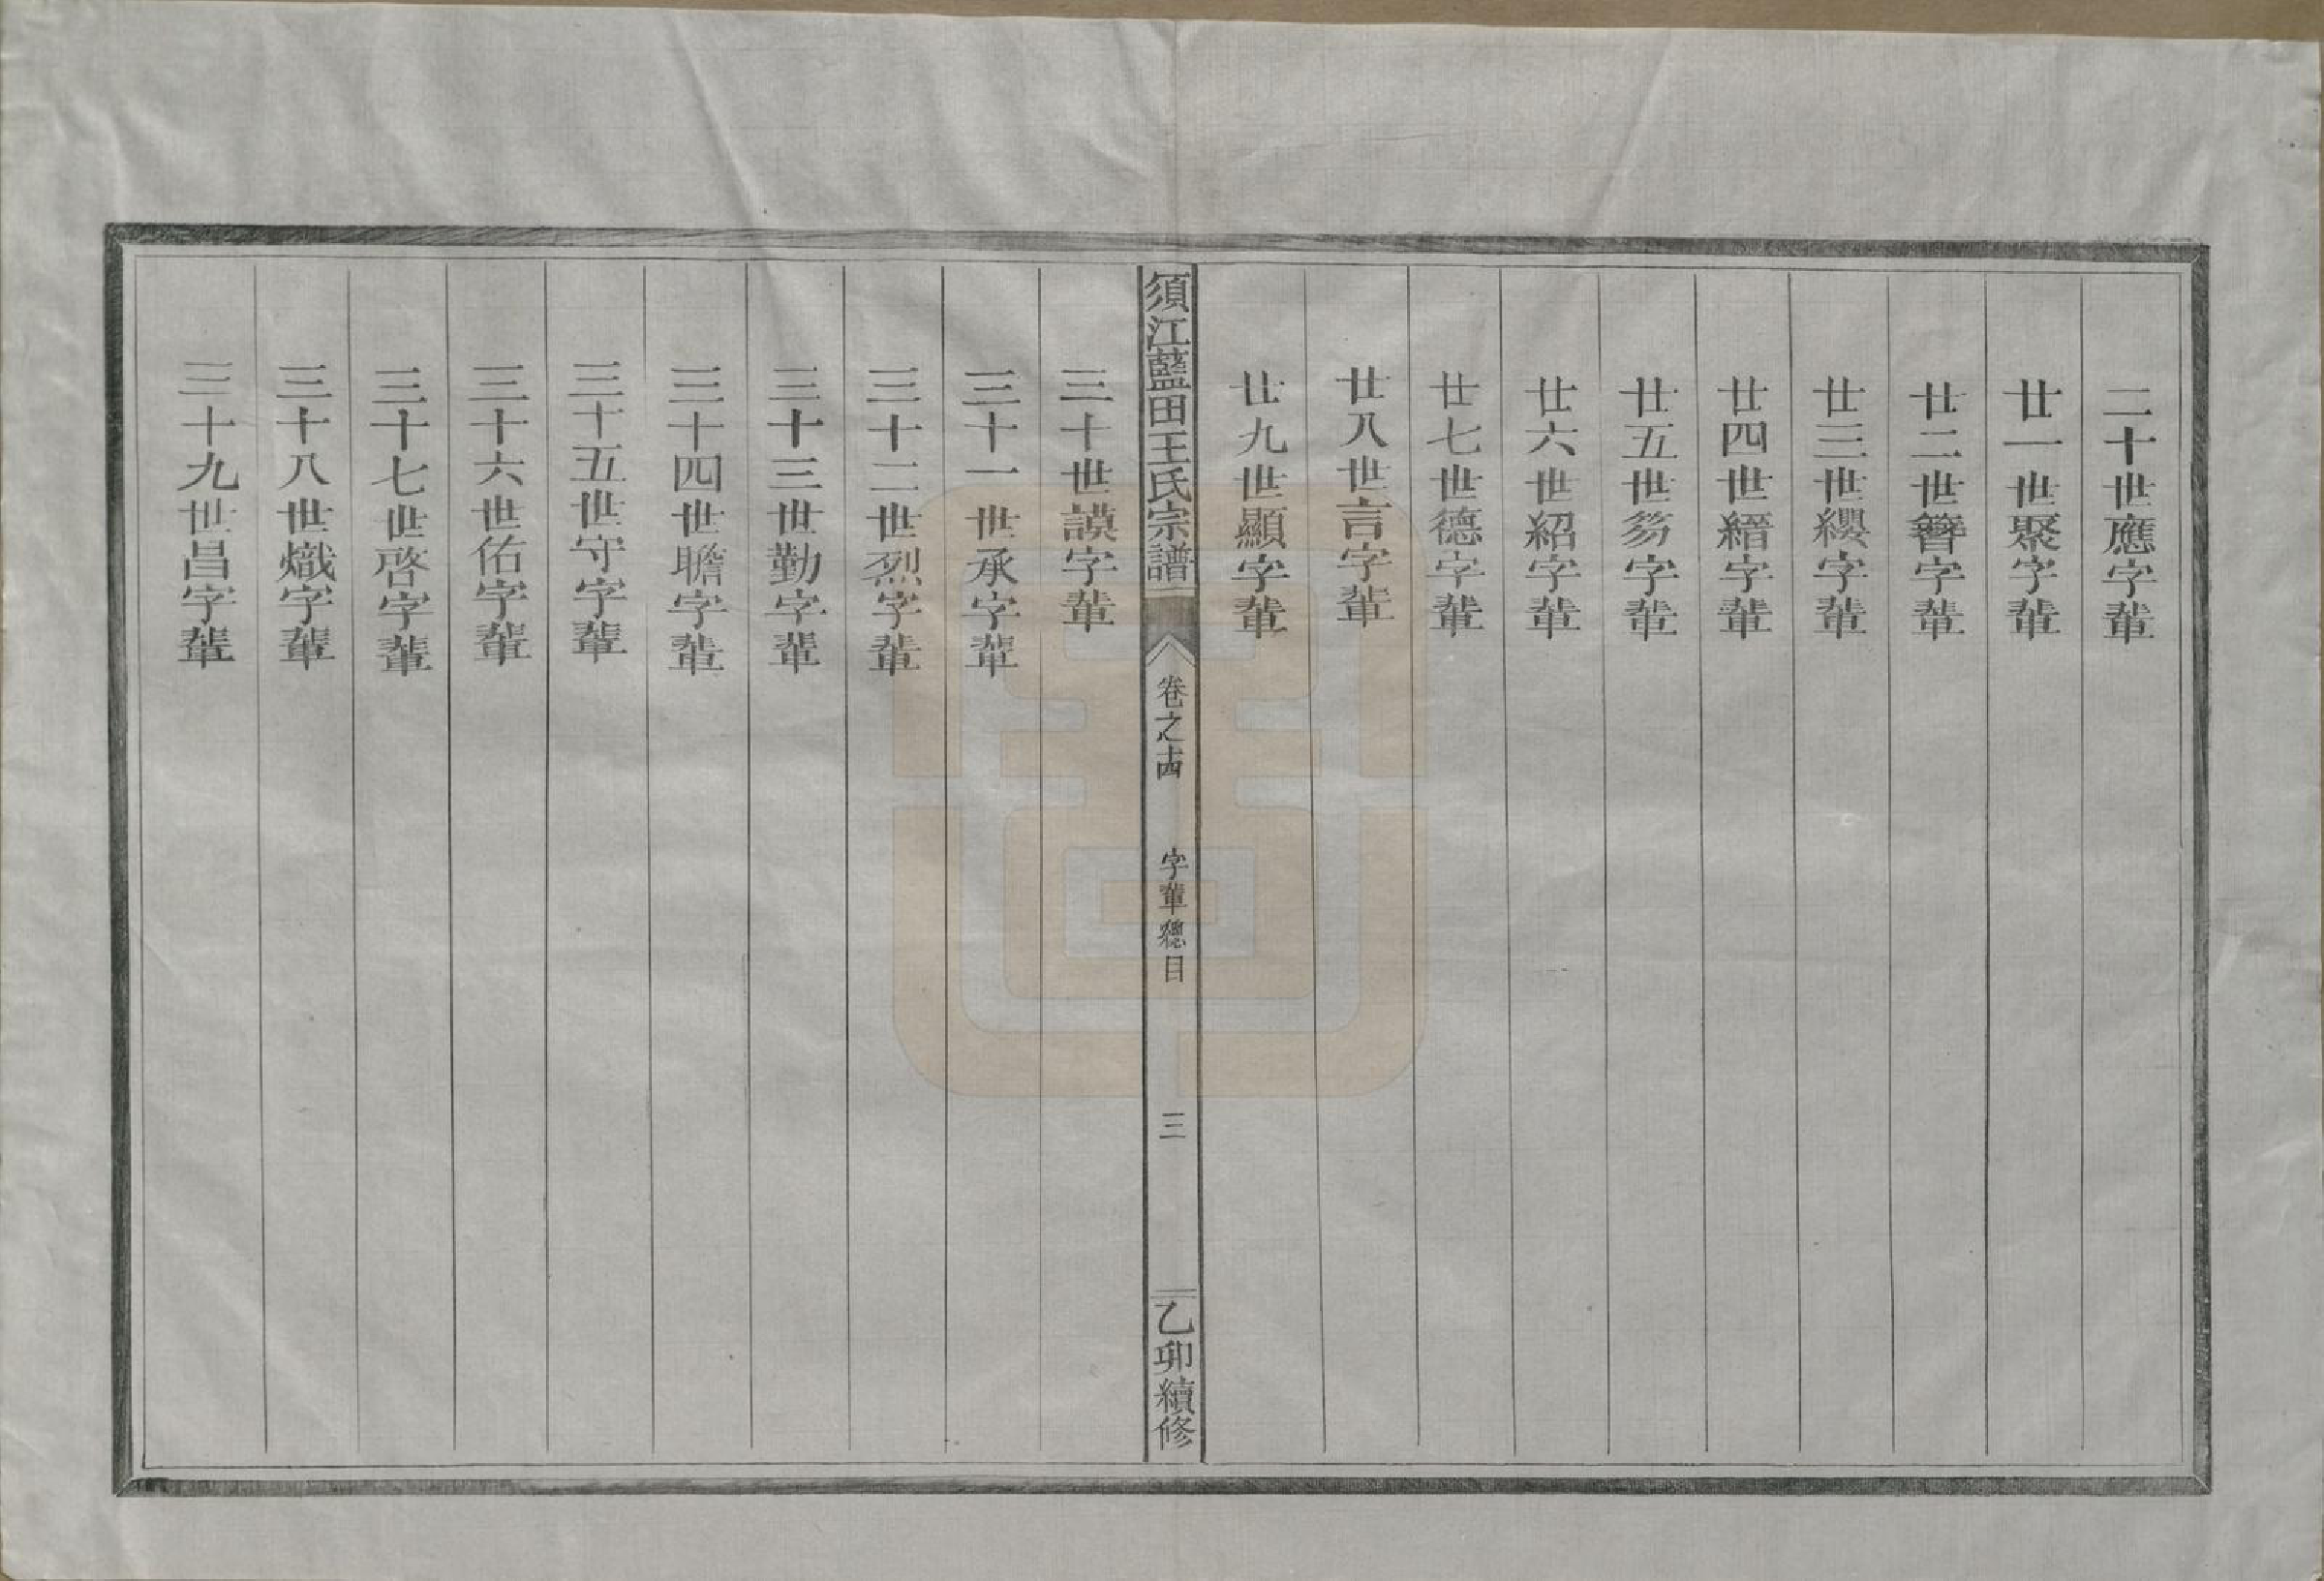 二十世應字輩
廿一世聚字輩
廿二世簪字輩
廿三世纓字輩
廿四世縉字輩
廿五世笏字輩
廿六世紹字輩
廿七世德字輩
廿八世言字輩
廿九世顯字輩
須江藍田王氏宗譜
卷之十四
字輩總目
三
乙卯續修
三十世謨字輩
三十一世承字輩
三十二世烈字輩
三十三世勤字輩
三十四世瞻字輩
三十五世守字輩
三十六世佑字輩
三十七世啓字輩
三十八世熾字輩
三十九世昌字輩